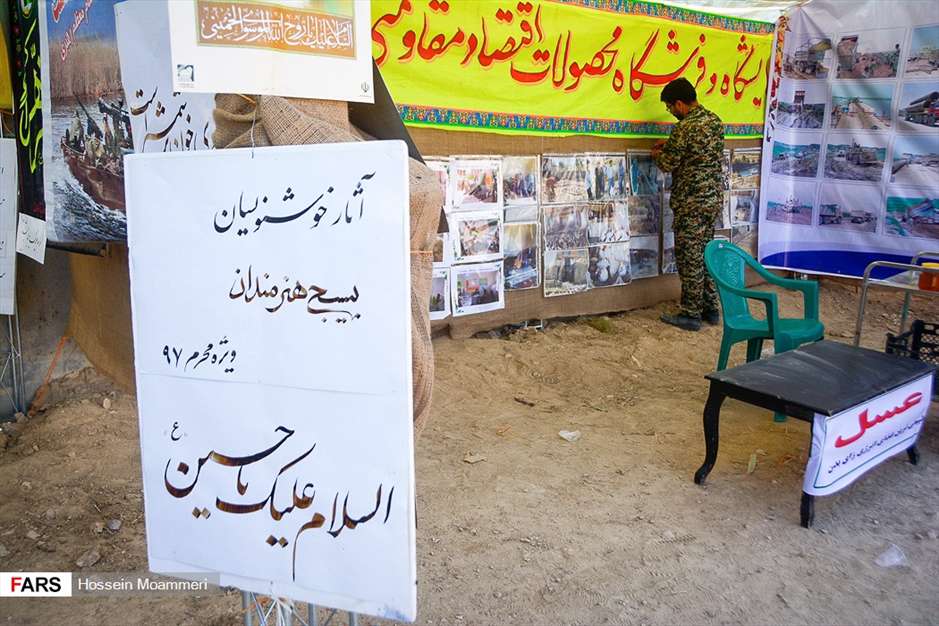 السلام علیک یا روح الله الموسوی الخمینی
نمایشگاه و فروشگاه محصولات اقتصاد مقاومتی
آثار خوشنویسان
بسیج هنرمندان
ویژه محرم ۹۷
السلام علیک یا حسین (ع)
عسل
FARS Hossein Moammeri